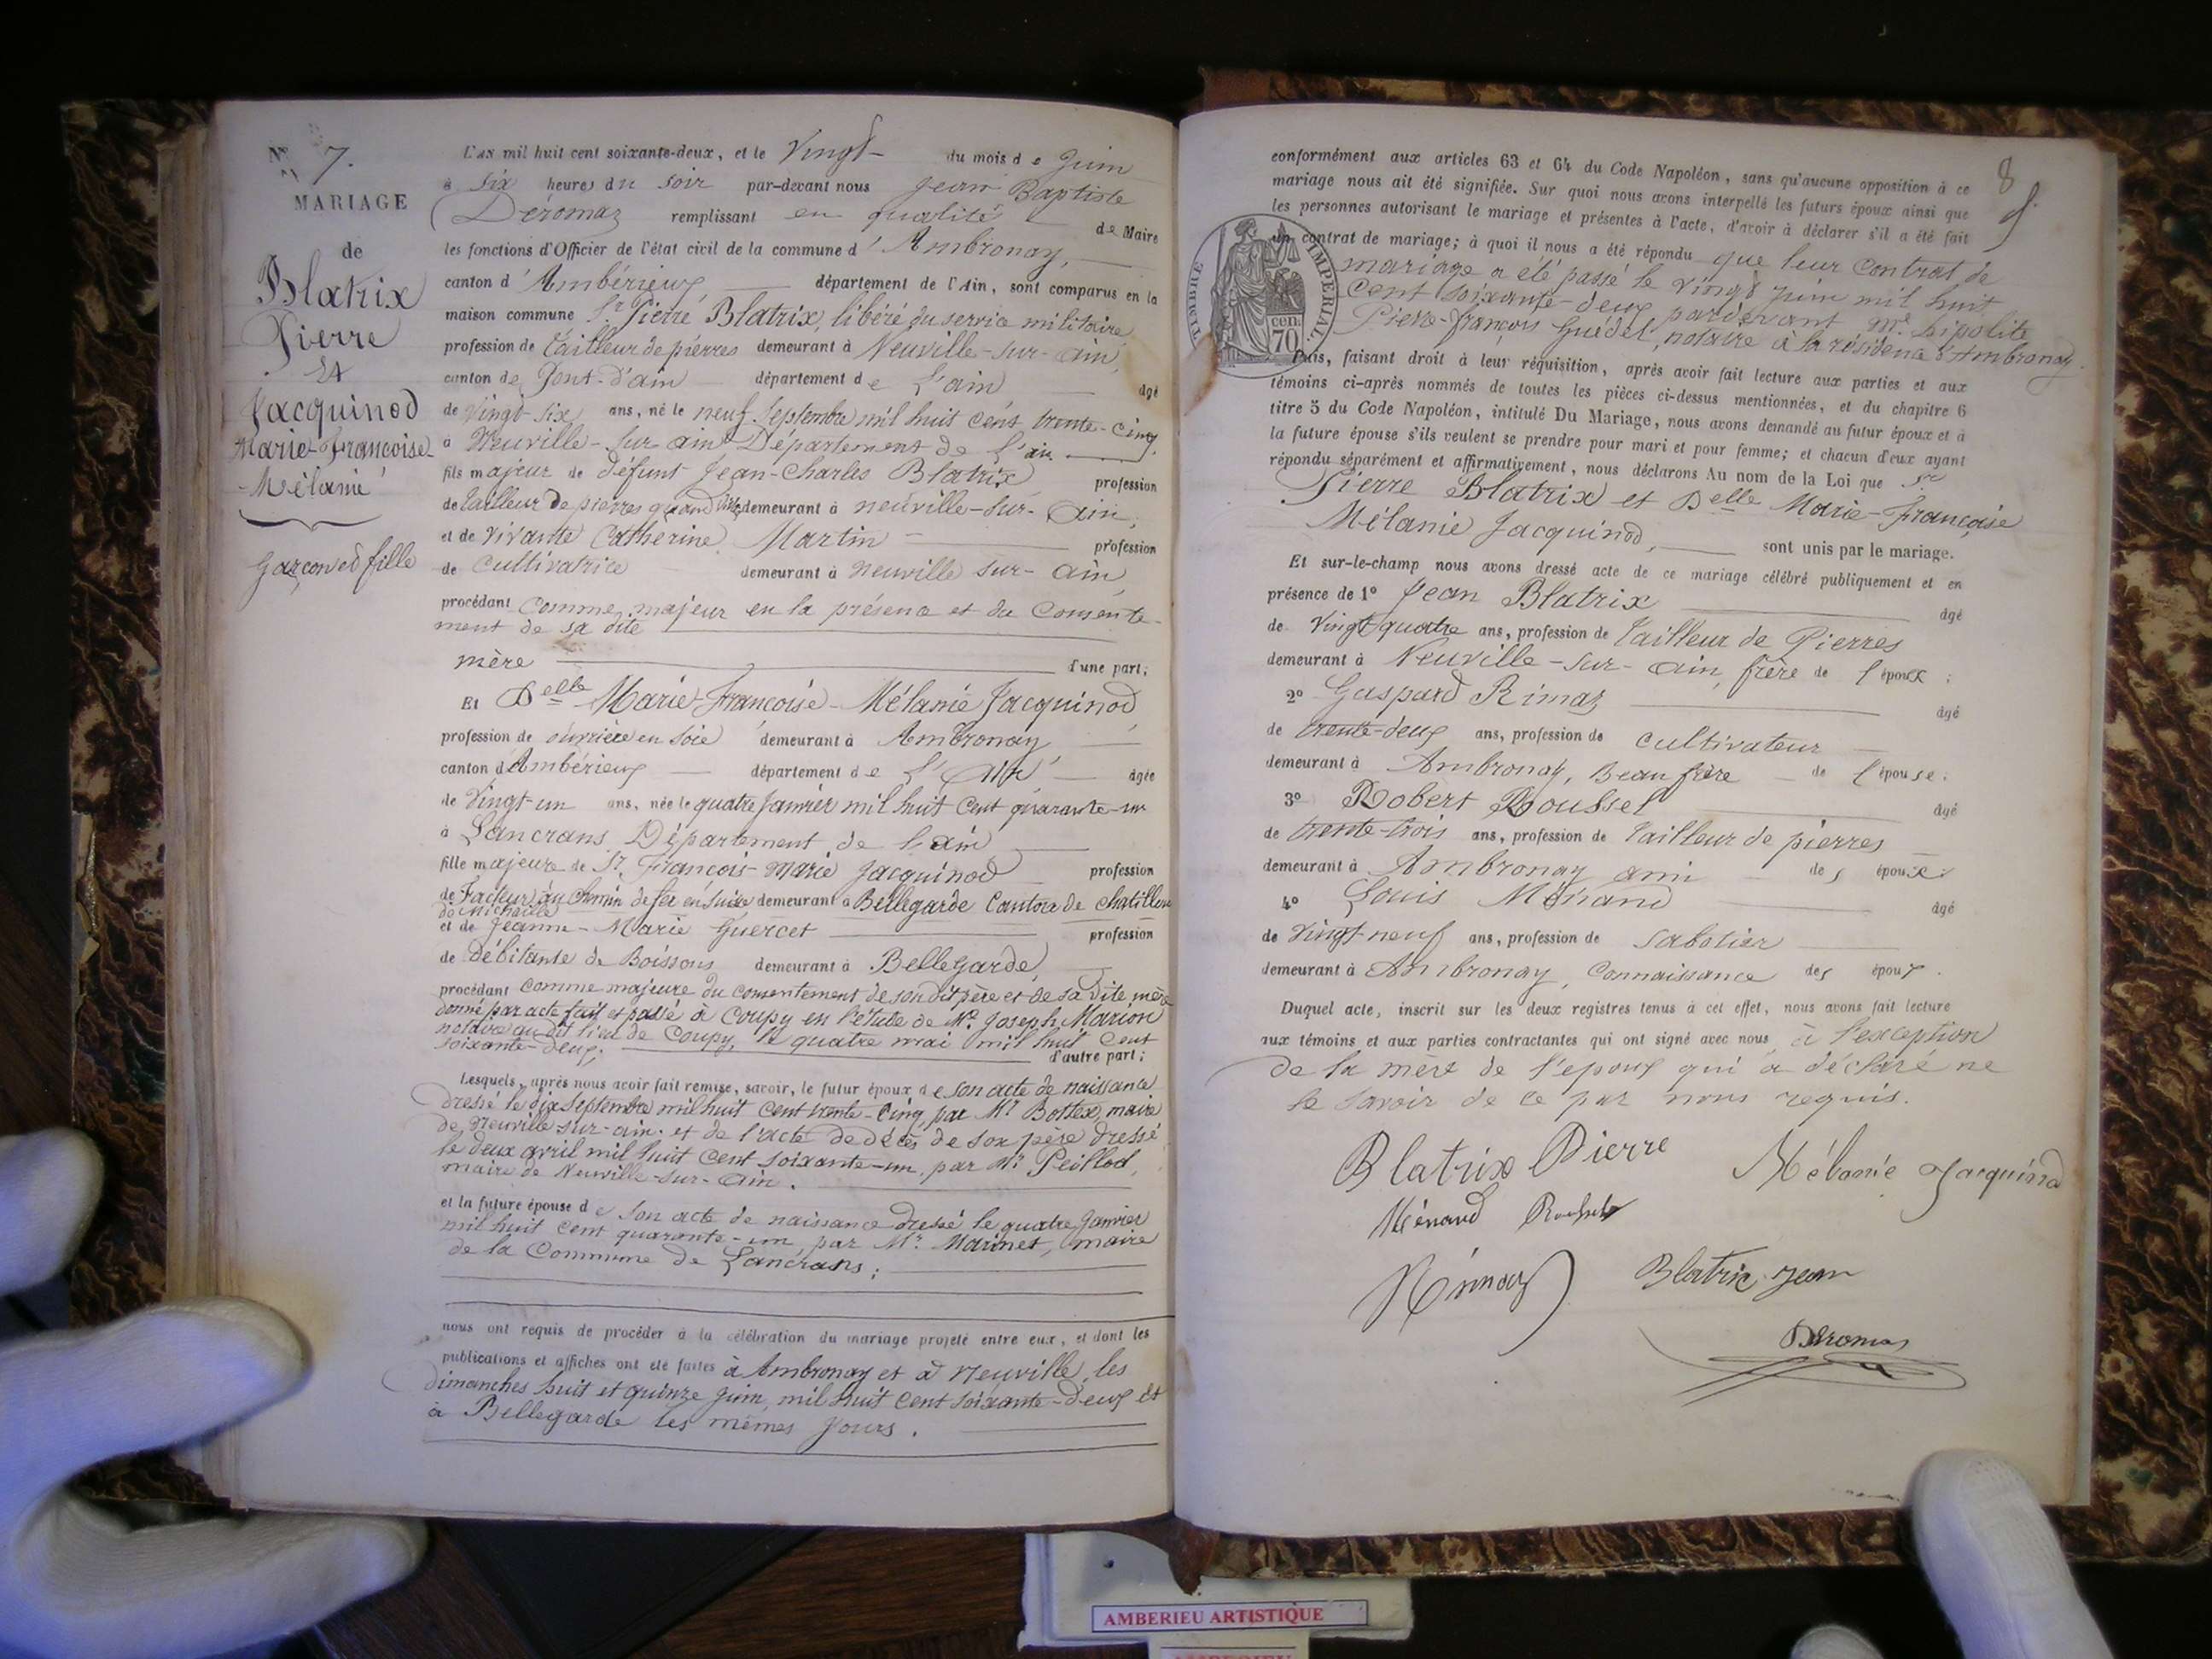 N° 7.
MARIAGE
de
Blatrix
Pierre
Et
Jacquinod
Marie-Françoise
-Mélanie
Garçon et fille
L'an mil huit cent soixante-deux, et le Vingt du mois de Juin
à six heures du soir par-devant nous Jean Baptiste
Déromaz remplissant en qualité de Maire
les fonctions d'Officier de l'état civil de la commune d'Ambronay,
canton d'Ambérieux département de l'Ain, sont comparus en la
maison commune Sr. Pierre Blatrix, libéré du service militaire
profession de tailleur de pierres demeurant à Neuville-sur-ain,
canton de Pont-d'ain département de L'ain âgé
de Vingt-six ans, né le neuf Septembre mil huit cent trente-cinq,
à Neuville-sur-ain Département de L'ain
fils majeur de défunt Jean-Charles Blatrix profession
de tailleur de pierres quand demeurant à neuville-sur-ain,
et de vivante Catherine Martin profession
de Cultivatrice demeurant à neuville sur-ain
procédant comme majeur en la présence et du consente-
ment de sa dite
mère d'une part;
Et Delle Marie-Françoise-Mélanie Jacquinod
profession de ouvrière en soie demeurant à Ambronay
canton d'Ambérieux département de L'Ain âgée
de Vingt-un ans, née le quatre Janvier mil huit cent quarante-un
à Lancrans Département de l'ain
fille majeure de Sr. François-Marie Jacquinod profession
de Facteur au chemin de fer en Suisse demeurant à Bellegarde Canton de Chatillon
de Michaille
et de Jeanne-Marie Guercet profession
de Débitante de Boissons demeurant à Bellegarde,
procédant comme majeure du consentement de son dit père et de sa dite mère
donné par acte fait et passé à Coupy en l'étude de Me. Joseph Marion
notaire au dit lieu de Coupy, le quatre mai mil huit cent
soixante-deux; d'autre part;
Lesquels, après nous avoir fait remise, savoir, le futur époux de son acte de naissance
dressé le dix Septembre mil huit cent trente-cinq, par Mr Bottex, maire
de Neuville sur-ain. et de l'acte de décès de son père dressé
le deux avril mil huit cent soixante-un, par Mr Peillod,
maire de Neuville-sur-Ain.
et la future épouse de son acte de naissance dressé le quatre Janvier
mil huit cent quarante-un, par Mr. Marinet, maire
de la Commune de Lancrans;
nous ont requis de procéder à la célébration du mariage projeté entre eux, et dont les
publications et affiches ont été faites à Ambronay et à Neuville, les
dimanches huit et quinze Juin, mil huit cent soixante-deux et
à Bellegarde les mêmes jours.
8
conformément aux articles 63 et 64 du Code Napoléon, sans qu'aucune opposition à ce
mariage nous ait été signifiée. Sur quoi nous avons interpellé les futurs époux ainsi que
les personnes autorisant le mariage et présentes à l'acte, d'avoir à déclarer s'il a été fait
un contrat de mariage; à quoi il nous a été répondu que leur contrat de
mariage a été passé le vingt Juin mil huit
cent soixante-deux pardevant Me. Hipolite
Pierre-François Guédel, notaire à la résidence d'Ambronay.
TIMBRE IMPERIAL.
70 cen.
Puis, faisant droit à leur réquisition, après avoir fait lecture aux parties et aux
témoins ci-après nommés de toutes les pièces ci-dessus mentionnées, et du chapitre 6
titre 5 du Code Napoléon, intitulé Du Mariage, nous avons demandé au futur époux et à
la future épouse s'ils veulent se prendre pour mari et pour femme; et chacun d'eux ayant
répondu séparément et affirmativement, nous déclarons Au nom de la Loi que Sr
Pierre Blatrix et Delle Marie-Françoise
Mélanie Jacquinod, sont unis par le mariage.
Et sur-le-champ nous avons dressé acte de ce mariage célébré publiquement et en
présence de 1° Jean Blatrix âgé
de Vingt quatre ans, profession de Tailleur de Pierres
demeurant à Neuville-sur-ain, frère de l'époux;
2° Gaspard Rimaz âgé
de trente-deux ans, profession de cultivateur
demeurant à Ambronay, Beau frère de l'épouse;
3° Robert Roussel âgé
de trente-trois ans, profession de Tailleur de pierres
demeurant à Ambronay ami des époux;
4° Louis Ménand âgé
de vingt neuf ans, profession de Sabotier
demeurant à Ambronay, Connaissance des époux.
Duquel acte, inscrit sur les deux registres tenus à cet effet, nous avons fait lecture
aux témoins et aux parties contractantes qui ont signé avec nous à l'exception
de la mère de l'époux qui a déclaré ne
le savoir de ce par nous requis.
Blatrix Pierre Mélanie Jacquinod
Ménand
Rimaz Blatrix Jean
Déromaz
AMBERIEU ARTISTIQUE